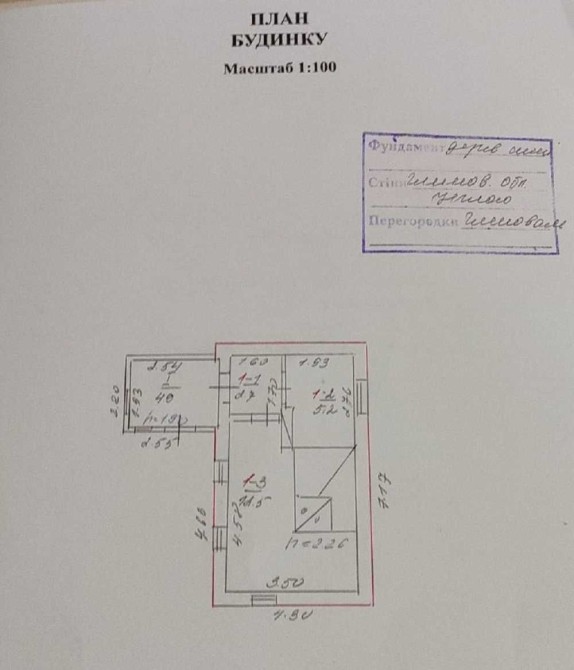 ПЛАН
БУДИНКУ
Масштаб 1:100
Фундамент дерев
Стіни глинов. обл.
цеглою
Перегородки глинован
2.54
1.60
1.93
I
4.9
1-1
2.7
1-2
5.2
2.20
1.93
1.70
2.76
h=1.90
2.55
1-3
4.60
4.58
7.17
h=2.26
3.50
4.30